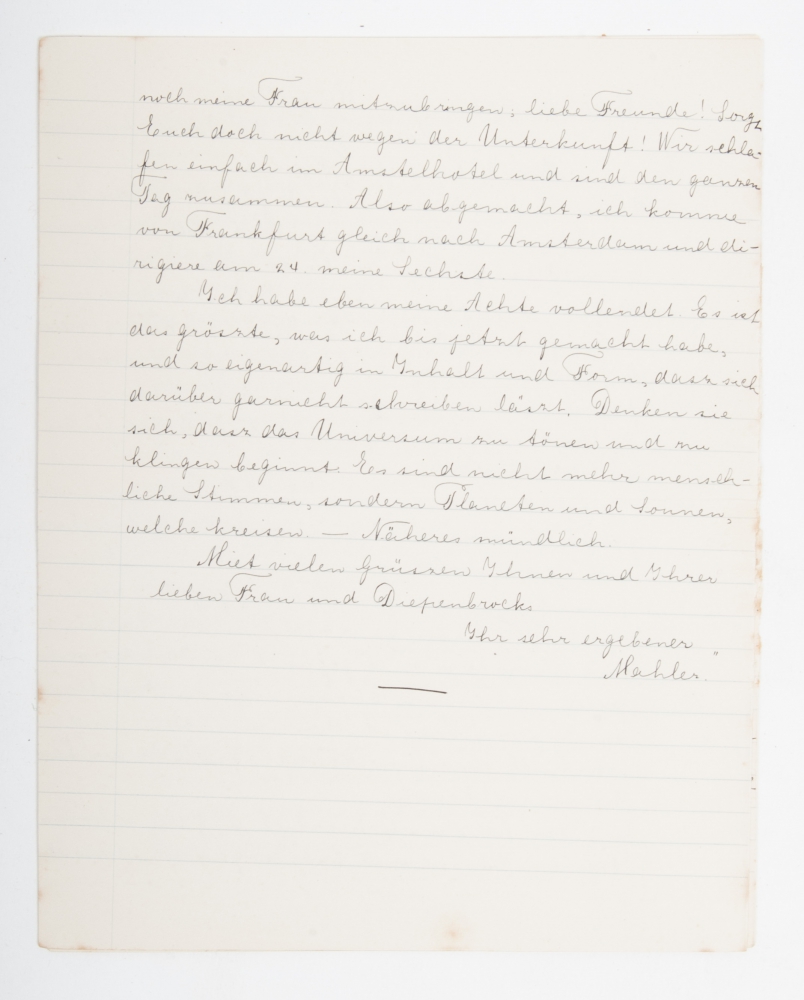 noch meine Frau mitzubringen; liebe Freunde! Sorgt
Euch doch nicht wegen der Unterkunft! Wir schla-
fen einfach im Amstelhotel und sind den ganzen
Tag zusammen. Also abgemacht, ich komme
von Frankfurt gleich nach Amsterdam und di-
rigiere am 24. meine Sechste.
Ich habe eben meine Achte vollendet. Es ist
das gröszte, was ich bis jetzt gemacht habe,
und so eigenartig in Inhalt und Form, dasz sich
darüber garnicht schreiben läszt. Denken sie
sich, dasz das Universum zu tönen und zu
klingen beginnt. Es sind nicht mehr mensch-
liche Stimmen, sondern Planeten und Sonnen,
welche kreisen. — Näheres mündlich.
Miet vielen Grüszen Ihnen und Ihrer
lieben Frau und Diepenbrocks
Ihr sehr ergebener
Mahler."